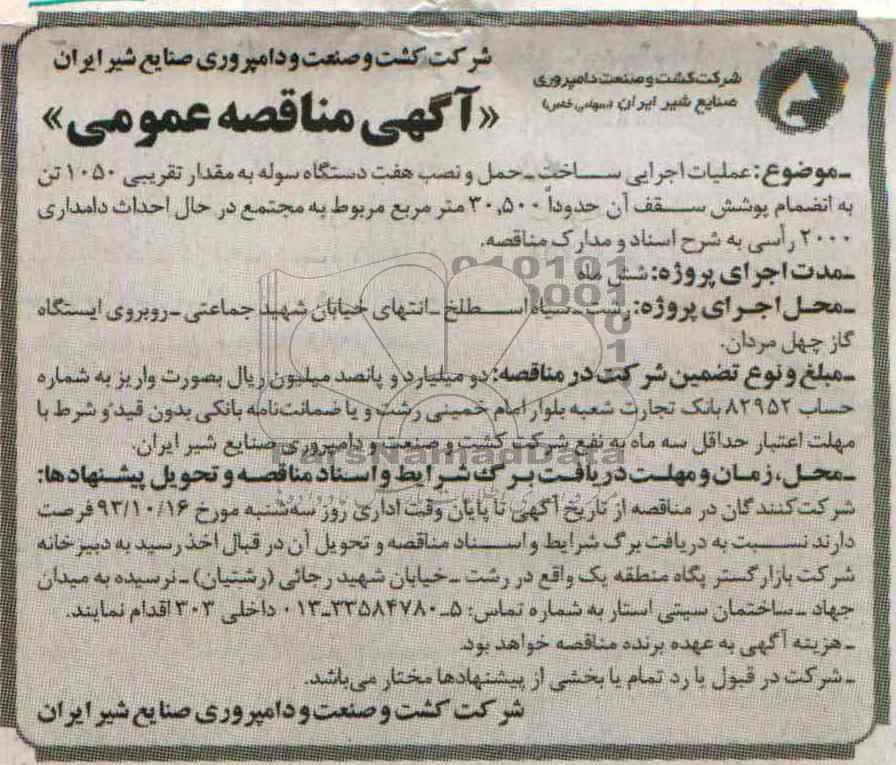 شرکت کشت و صنعت و دامپروری صنایع شیر ایران
شرکت کشت و صنعت دامپروری
صنایع شیر ایران (سهامی خاص)
«آگهی مناقصه عمومی»
ـ موضوع: عملیات اجرایی ساخت ـ حمل و نصب هفت دستگاه سوله به مقدار تقریبی ۱۰۵۰ تن
به انضمام پوشش سقف آن حدوداً ۳۰,۵۰۰ متر مربع مربوط به مجتمع در حال احداث دامداری
۲۰۰۰ رأسی به شرح اسناد و مدارک مناقصه.
ـ مدت اجرای پروژه: شش ماه
ـ محل اجرای پروژه: رشت ـ سیاه اسطلخ ـ انتهای خیابان شهید جماعتی ـ روبروی ایستگاه
گاز چهل مردان.
ـ مبلغ و نوع تضمین شرکت در مناقصه: دو میلیارد و پانصد میلیون ریال بصورت واریز به شماره
حساب ۸۲۹۵۲ بانک تجارت شعبه بلوار امام خمینی رشت و یا ضمانت‌نامه بانکی بدون قید و شرط با
مهلت اعتبار حداقل سه ماه به نفع شرکت کشت و صنعت و دامپروری صنایع شیر ایران.
ـ محل، زمان و مهلت دریافت برگ شرایط و اسناد مناقصه و تحویل پیشنهادها:
شرکت‌کنندگان در مناقصه از تاریخ آگهی تا پایان وقت اداری روز سه‌شنبه مورخ ۹۳/۱۰/۱۶ فرصت
دارند نسبت به دریافت برگ شرایط و اسناد مناقصه و تحویل آن در قبال اخذ رسید به دبیرخانه
شرکت بازارگستر پگاه منطقه یک واقع در رشت ـ خیابان شهید رجائی (رشتیان) ـ نرسیده به میدان
جهاد ـ ساختمان سیتی استار به شماره تماس: ۵ـ۳۳۵۸۴۷۸۰ـ۰۱۳ داخلی ۳۰۳ اقدام نمایند.
ـ هزینه آگهی به عهده برنده مناقصه خواهد بود.
ـ شرکت در قبول یا رد تمام یا بخشی از پیشنهادها مختار می‌باشد.
شرکت کشت و صنعت و دامپروری صنایع شیر ایران
ParsNamadData